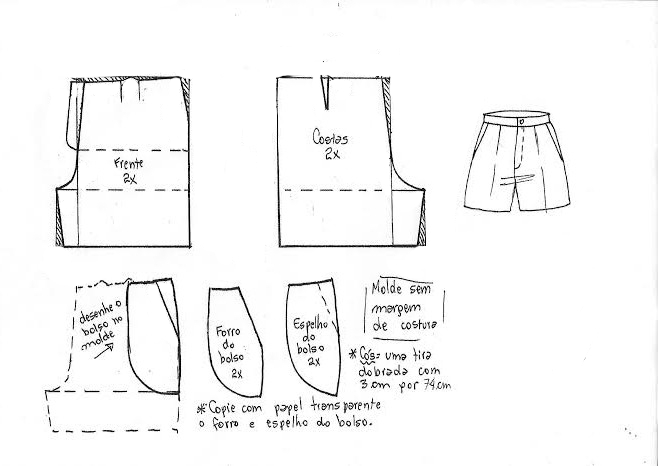 Frente
2x
Costas
2x
desenhe o
bolso no
molde
Forro
do
bolso
2x
Espelho
do
bolso
2x
Molde sem
margem
de costura
* Cós = uma tira
dobrada com
3 cm por 74 cm
* Copie com papel transparente
o forro e espelho do bolso.